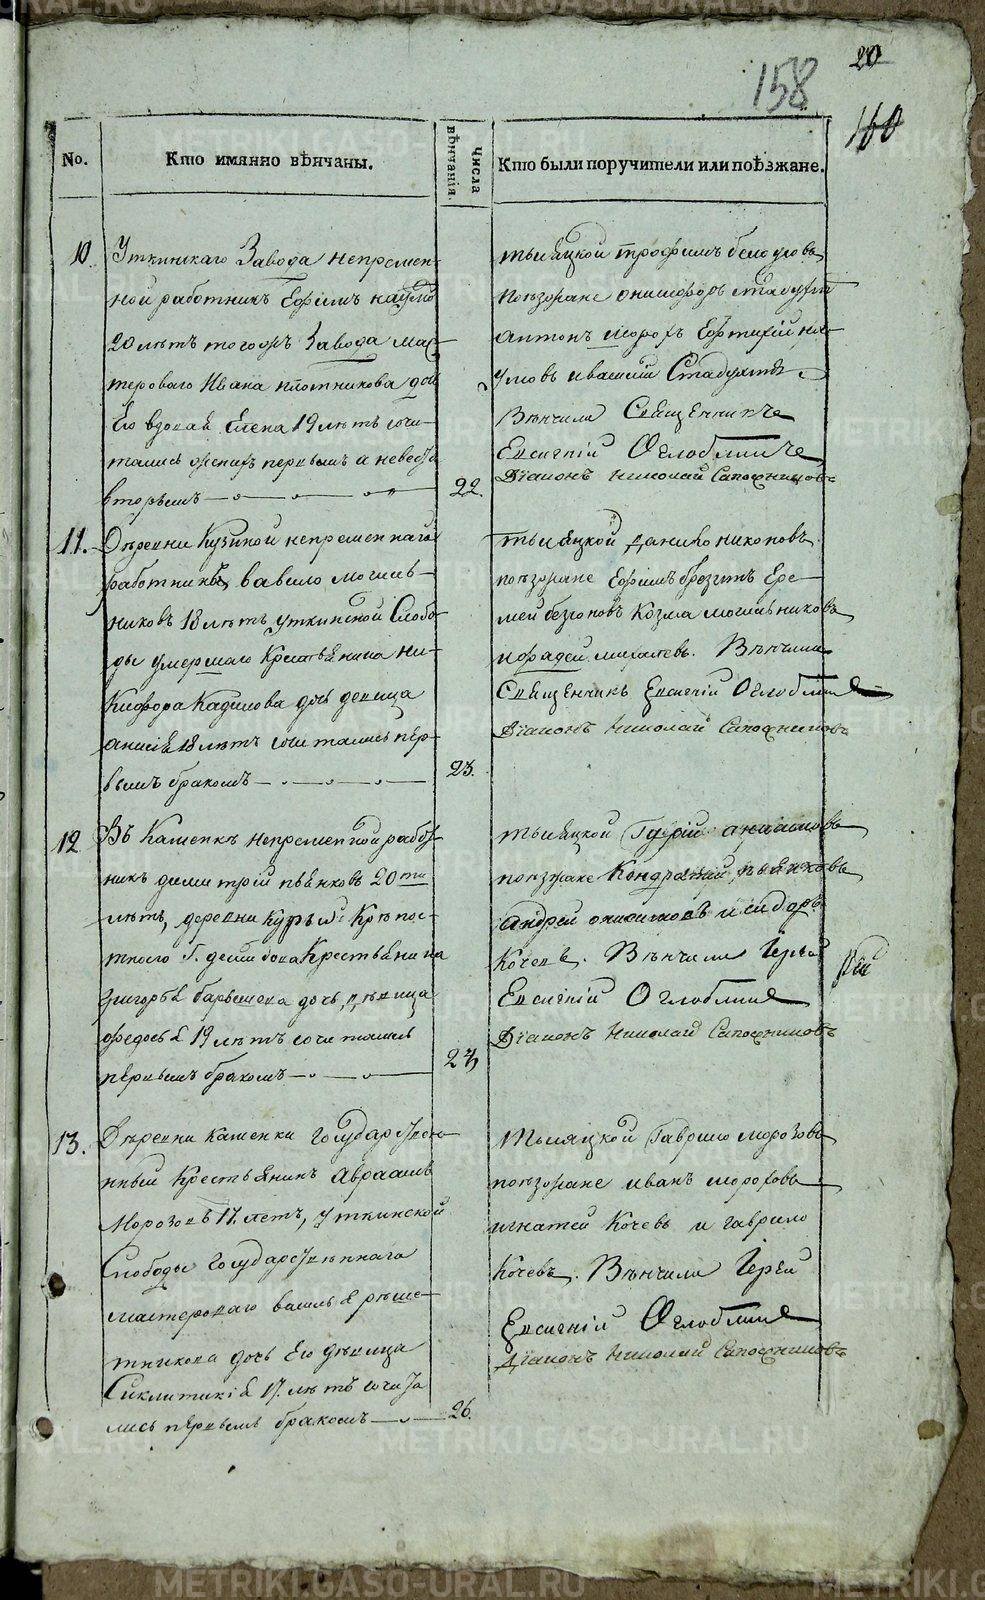 METRIKI.GASO-URAL.RU
158
20
160
No.
Кто имянно вѣнчаны.
числа вѣнчанія.
Кто были поручители или поѣзжане.
10
Уткинскаго Завода непремен-
ной работникъ Ефимъ Наумо
20 лѣтъ тогожъ Завода мас-
тероваго Ивана плотникова доч
Его вдовая Елена 19 лѣтъ соче-
тались женихъ первымъ а невеста
вторымъ
22.
тысяцкой трофимъ белоусовъ
поезжане
антонъ морозъ
Вѣнчили Священникъ
Евсигній Оглоблинъ
Діаконъ Николай Сапожниковъ
11.
Деревни Кузиной непременнаго
работникъ вавило мочаль-
никовъ 18 лѣтъ уткинской Слобо-
ды умершаго Крестьянина ни-
кифора Кадилова дочь девица
анисія 18 лѣтъ сочетались пер-
вымъ бракомъ
23.
тысяцкой данило никоновъ
поезжане Ефимъ Ере-
мей Козма мочальниковъ
и фадей михалевъ. Вѣнчили
Священникъ Евсигній Оглоблинъ
Діаконъ Николай Сапожниковъ
12
Въ Каменкѣ непременной работ-
никъ димитрій пьянковъ 20 ти
лѣтъ, деревни Курьи Крѣпос-
тного Г. демидова Крестьянина
григорья барышева дочь, дѣвица
федосья 19 лѣтъ сочетались
первымъ бракомъ
23
тысяцкой Гурій
поезжане Кондратий, пьянковъ
Андрей анисимовъ и сидоръ
Кочевъ. Вѣнчили Іерей
Евсигній Оглоблинъ
Діаконъ Николай Сапожниковъ
13.
Деревни Каменки Государствен-
ный Крестьянинъ Авраамъ
Морозовъ 17. летъ, уткинской
Слободы Государственнаго
мастероваго василья рѣше-
тникова дочь Его дѣвица
Сиклитикія 17. лѣтъ сочета-
лись первымъ бракомъ
26.
Тысяцкой Гаврило морозовъ
поезжане иванъ морозовъ
игнатей Кочевъ и гаврило
Кочевъ. Вѣнчили Іерей
Евсигній Оглоблинъ
Діаконъ Николай Сапожниковъ
METRIKI.GASO-URAL.RU